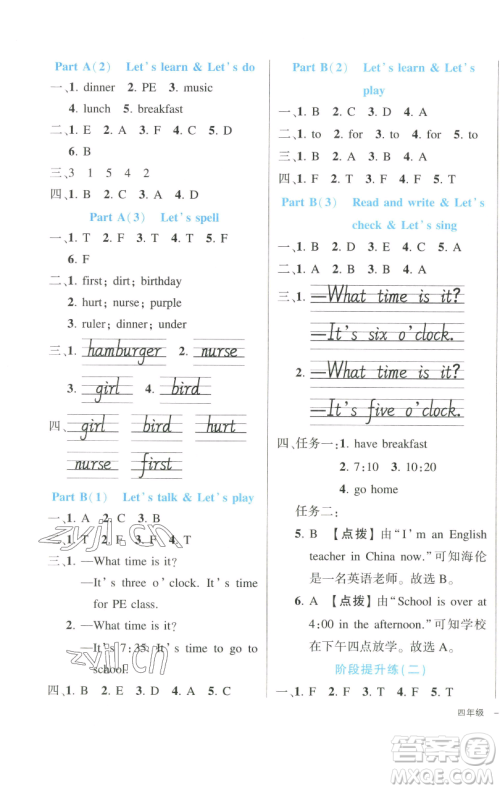 Part A(2) Let's learn & Let's do
一、1. dinner 2. PE 3. music
4. lunch 5. breakfast
二、1. E 2. A 3. F 4. C 5. D
6. B
三、3 1 5 4 2
四、1. B 2. C 3. A 4. B 5. C
Part A(3) Let's spell
一、1. T 2. F 3. T 4. T 5. F
6. F
二、1. first; dirt; birthday
2. hurt; nurse; purple
3. ruler; dinner; under
三、1. hamburger 2. nurse
3. girl 4. bird
四、girl bird hurt
nurse first
Part B(1) Let's talk & Let's play
一、1. A 2. C 3. B
二、1. T 2. F 3. F 4. T 5. F
三、1. —What time is it?
—It's three o'clock. It's time
for PE class.
2. —What time is it?
—It's 7:35. It's time to go to
school.
Part B(2) Let's learn & Let's
play
一、1. B 2. C 3. D 4. A
二、1. to 2. for 3. for 4. to
三、1. C 2. B 3. A 4. A
四、1. F 2. T 3. F 4. F 5. T
Part B(3) Read and write & Let's
check & Let's sing
一、1. B 2. A 3. B 4. A 5. B
二、1. C 2. B 3. A
三、1. —What time is it?
—It's six o'clock.
2. —What time is it?
—It's five o'clock.
四、任务一:1. have breakfast
2. 7:10 3. 10:20
4. go home
任务二:
5. B 【点拨】由“I'm an English
teacher in China now.”可知海伦
是一名英语老师。故选 B。
6. A 【点拨】由“School is over at
4:00 in the afternoon.”可知学校
在下午四点放学。故选 A。
阶段提升练(二)
一、1. F 2. F 3. T 4. F 5. T
四年级
zyjl.cn
zyjl.cn
作业精灵